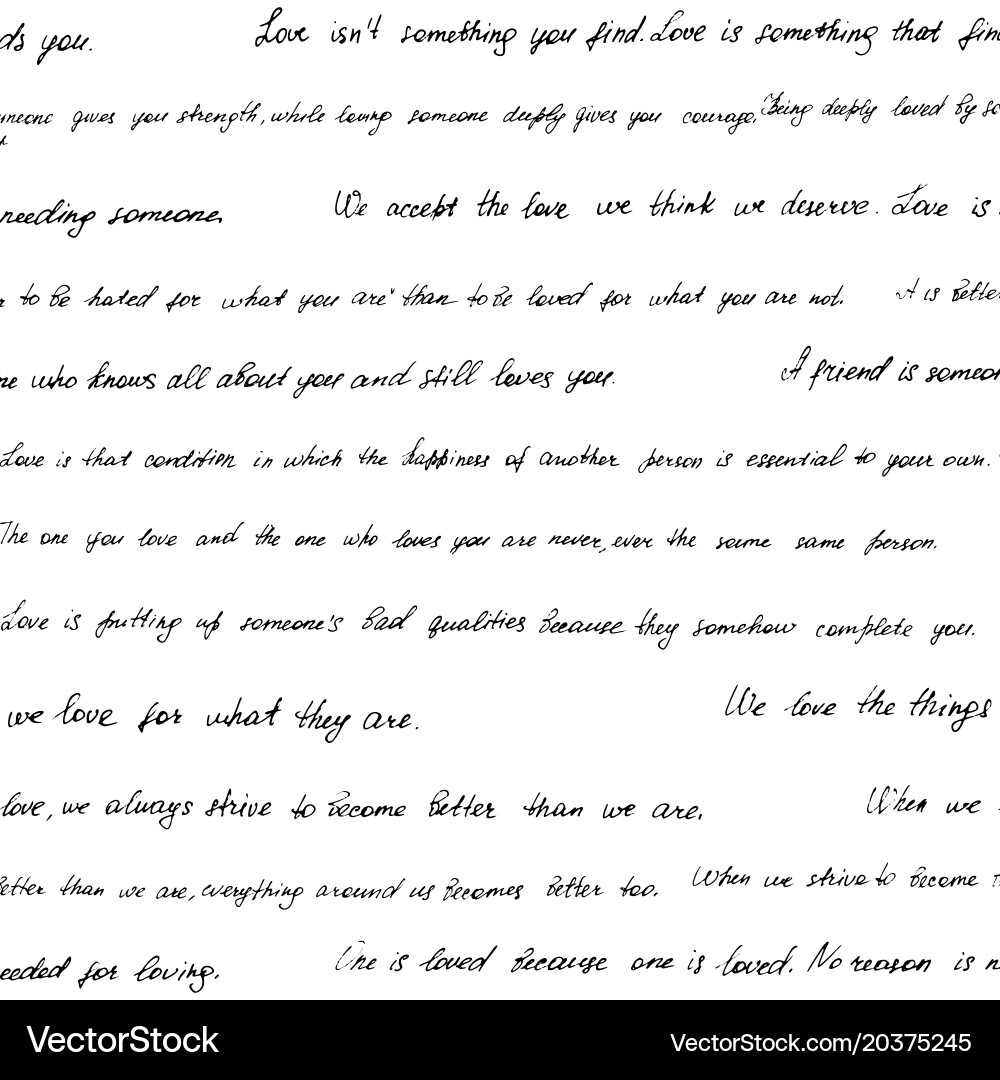 ds you. Love isn't something you find. Love is something that fin
meone gives you strength, while loving someone deeply gives you courage. Being deeply loved by so
needing someone. We accept the love we think we deserve. Love is
to be hated for what you are than to be loved for what you are not. It is better
ne who knows all about you and still loves you. A friend is someon
Love is that condition in which the happiness of another person is essential to your own.
The one you love and the one who loves you are never, ever the same same person.
Love is putting up someone's bad qualities because they somehow complete you.
we love for what they are. We love the things
love, we always strive to become better than we are. When we
better than we are, everything around us becomes better too. When we strive to become
eeded for loving. One is loved because one is loved. No reason is n
VectorStock VectorStock.com/20375245